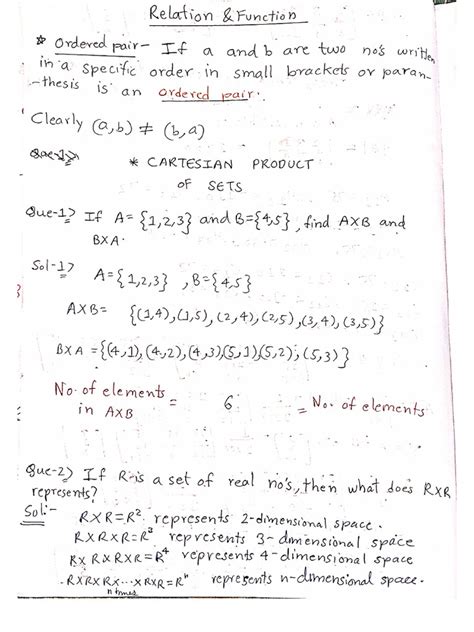 Relation & Function
* Ordered pair - If a and b are two no's written
in a specific order in small brackets or paran-
-thesis is an ordered pair.
Clearly (a,b) ≠ (b,a)
Que-1>
* CARTESIAN PRODUCT
OF SETS
Que-1> If A= {1,2,3} and B={4,5}, find AXB and
BXA.
Sol-1> A={1,2,3} , B={4,5}
AXB= {(1,4),(1,5),(2,4),(2,5),(3,4),(3,5)}
BXA ={(4,1),(4,2),(4,3)(5,1)(5,2),(5,3)}
No. of elements
in AXB = 6 = No. of elements
Que-2> If R is a set of real no's, then what does RXR
represents?
Sol:- RXR=R² represents 2-dimensional space.
RXRXR=R³ represents 3-dimensional space
RXRXRXR=R⁴ represents 4-dimensional space
RXRXRX...XRXR=Rⁿ represents n-dimensional space.
n times